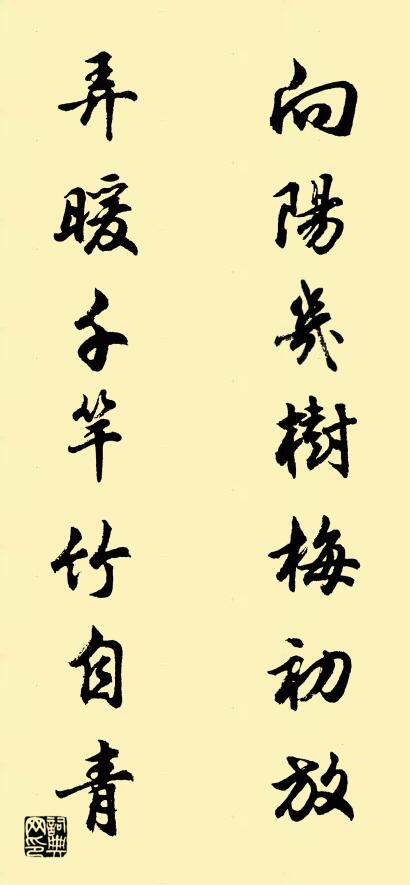 向陽幾樹梅初放
弄暖千竿竹自青
詞典網印